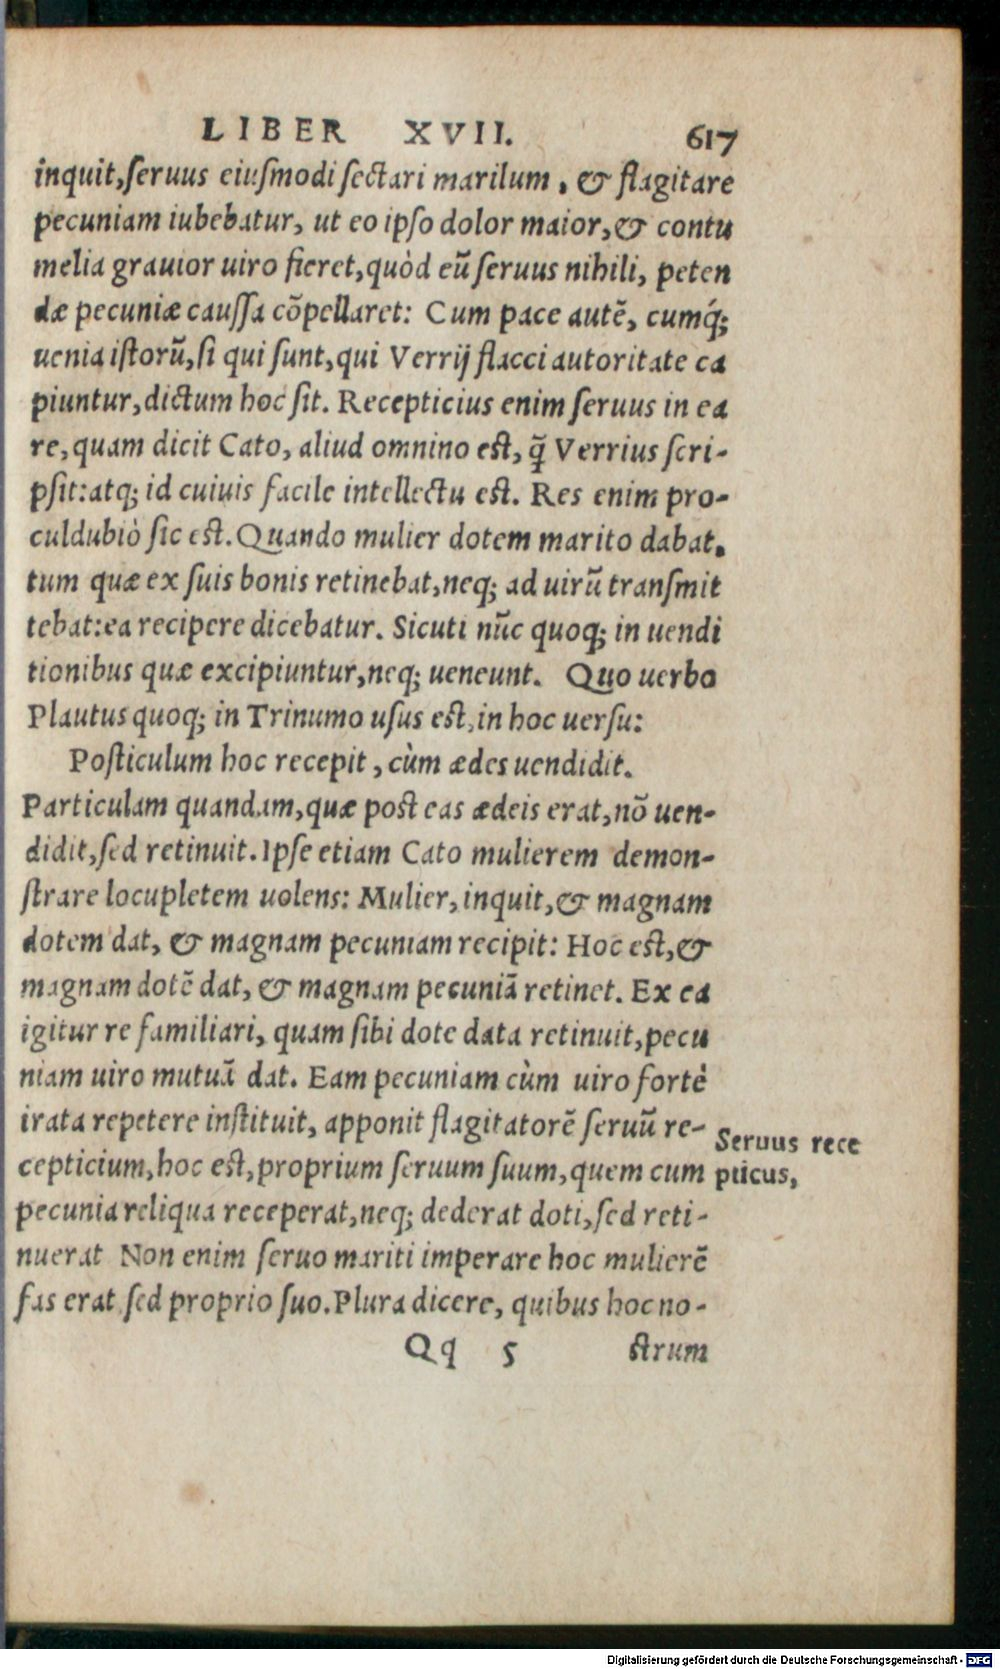 LIBER XVII. 617
inquit,ſeruus eiuſmodi ſectari marilum, & flagitare
pecuniam iubebatur, ut eo ipſo dolor maior,& contu
melia grauior uiro fieret,quòd eũ ſeruus nihili, peten
dæ pecuniæ cauſſa cõpellaret: Cum pace autẽ, cumq́;
uenia iſtorũ,ſi qui ſunt,qui Verrij flacci autoritate ca
piuntur,dictum hoc ſit. Recepticius enim ſeruus in ea
re,quam dicit Cato, aliud omnino eſt, q̃ Verrius ſcri-
pſit:atq; id cuiuis facile intellectu eſt. Res enim pro-
culdubiò ſic eſt.Quando mulier dotem marito dabat.
tum quæ ex ſuis bonis retinebat,neq; ad uirũ tranſmit
tebat:ea recipere dicebatur. Sicuti nũc quoq; in uendi
tionibus quæ excipiuntur,neq; ueneunt. Quo uerbo
Plautus quoq; in Trinumo uſus eſt,in hoc uerſu:
Poſticulum hoc recepit, cùm ædes uendidit.
Particulam quandam,quæ poſt eas ædeis erat,nõ uen-
didit,ſed retinuit.Ipſe etiam Cato mulierem demon-
ſtrare locupletem uolens: Mulier,inquit,& magnam
dotem dat, & magnam pecuniam recipit: Hoc eſt,&
magnam dotẽ dat, & magnam pecuniã retinet. Ex ea
igitur re familiari, quam ſibi dote data retinuit,pecu
niam uiro mutuã dat. Eam pecuniam cùm uiro fortè
irata repetere inſtituit, apponit flagitatorẽ ſeruũ re-
cepticium,hoc eſt,proprium ſeruum ſuum,quem cum
pecunia reliqua receperat,neq; dederat doti,ſed reti-
nuerat Non enim ſeruo mariti imperare hoc mulierẽ
fas erat ſed proprio ſuo.Plura dicere, quibus hoc no-
Qq 5 ſtrum
Seruus rece
pticus,
Digitalisierung gefördert durch die Deutsche Forschungsgemeinschaft - DFG